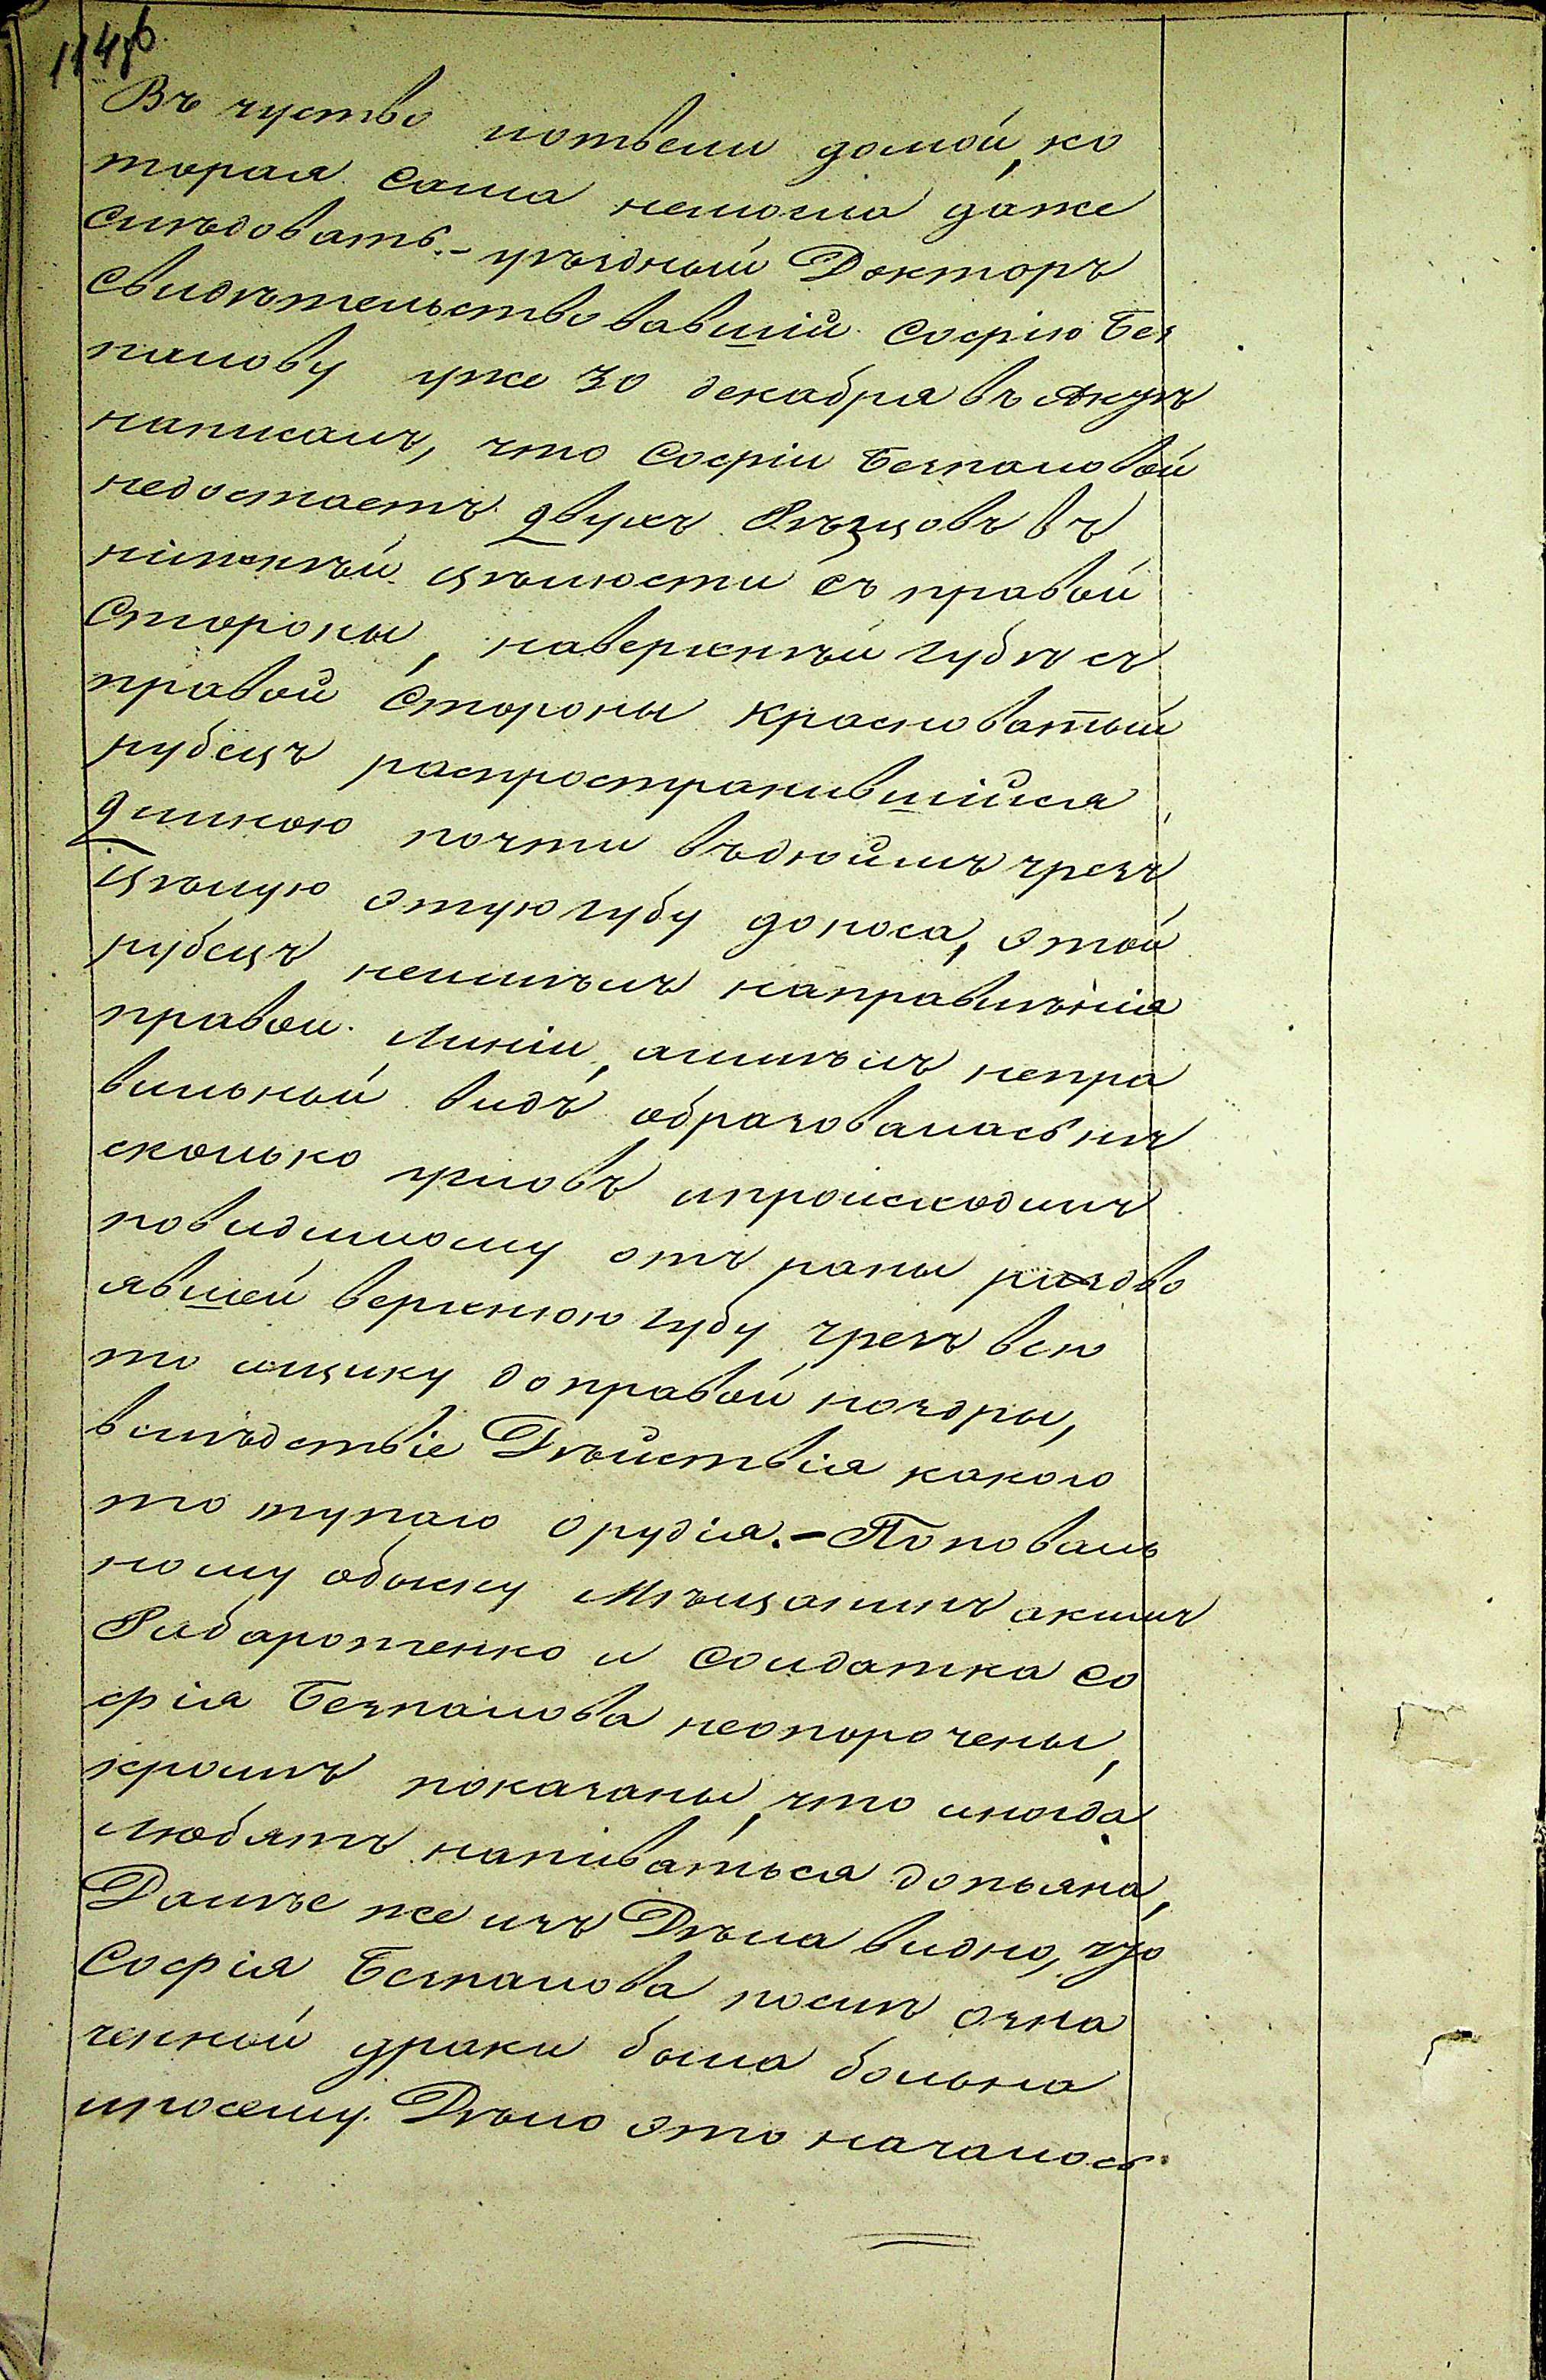 114об.
Въ чуство и отвели домой, ко
торая сама немогла даже
слѣдовать.- уѣздный Докторъ
свидѣтельствовавшій Софію Без
палову уже 30 декабря въ Актѣ
написалъ, что Софіи Безпаловой
недостаетъ двухъ Рѣзцовъ въ
ніжнѣй цѣлюсти съ правой
Стороны, наверхнѣй губѣ съ
правой Стороны красноватый
рубецъ распространившійся
длиною почти въдюймъ чрезъ
цѣлую этую губу доноса, этой
рубецъ неимѣлъ направлѣнія
правой Линіи, аимѣлъ непра
вильный видъ образовалась нѣ
сколько угловъ ипроисходилъ
повидимому отъ раны раздво
явшей верхнюю губу чрезъ всю
то лщину доправой ноздры,
вслѣдствіе Дѣйствія какого
то тупаго орудія.- Поповаль
ному обыску Мѣщанинъ акимъ
Рабаротенко и Солдатка Со
фія Безпалова неопорочены,
кромѣ показаны, что иногда
Любятъ напіваться допьяна,
Далѣе же изъ Дѣла видно, что
Софія Безпалова послѣ озна
ченной драки была больна
ипосему Дѣло это началось